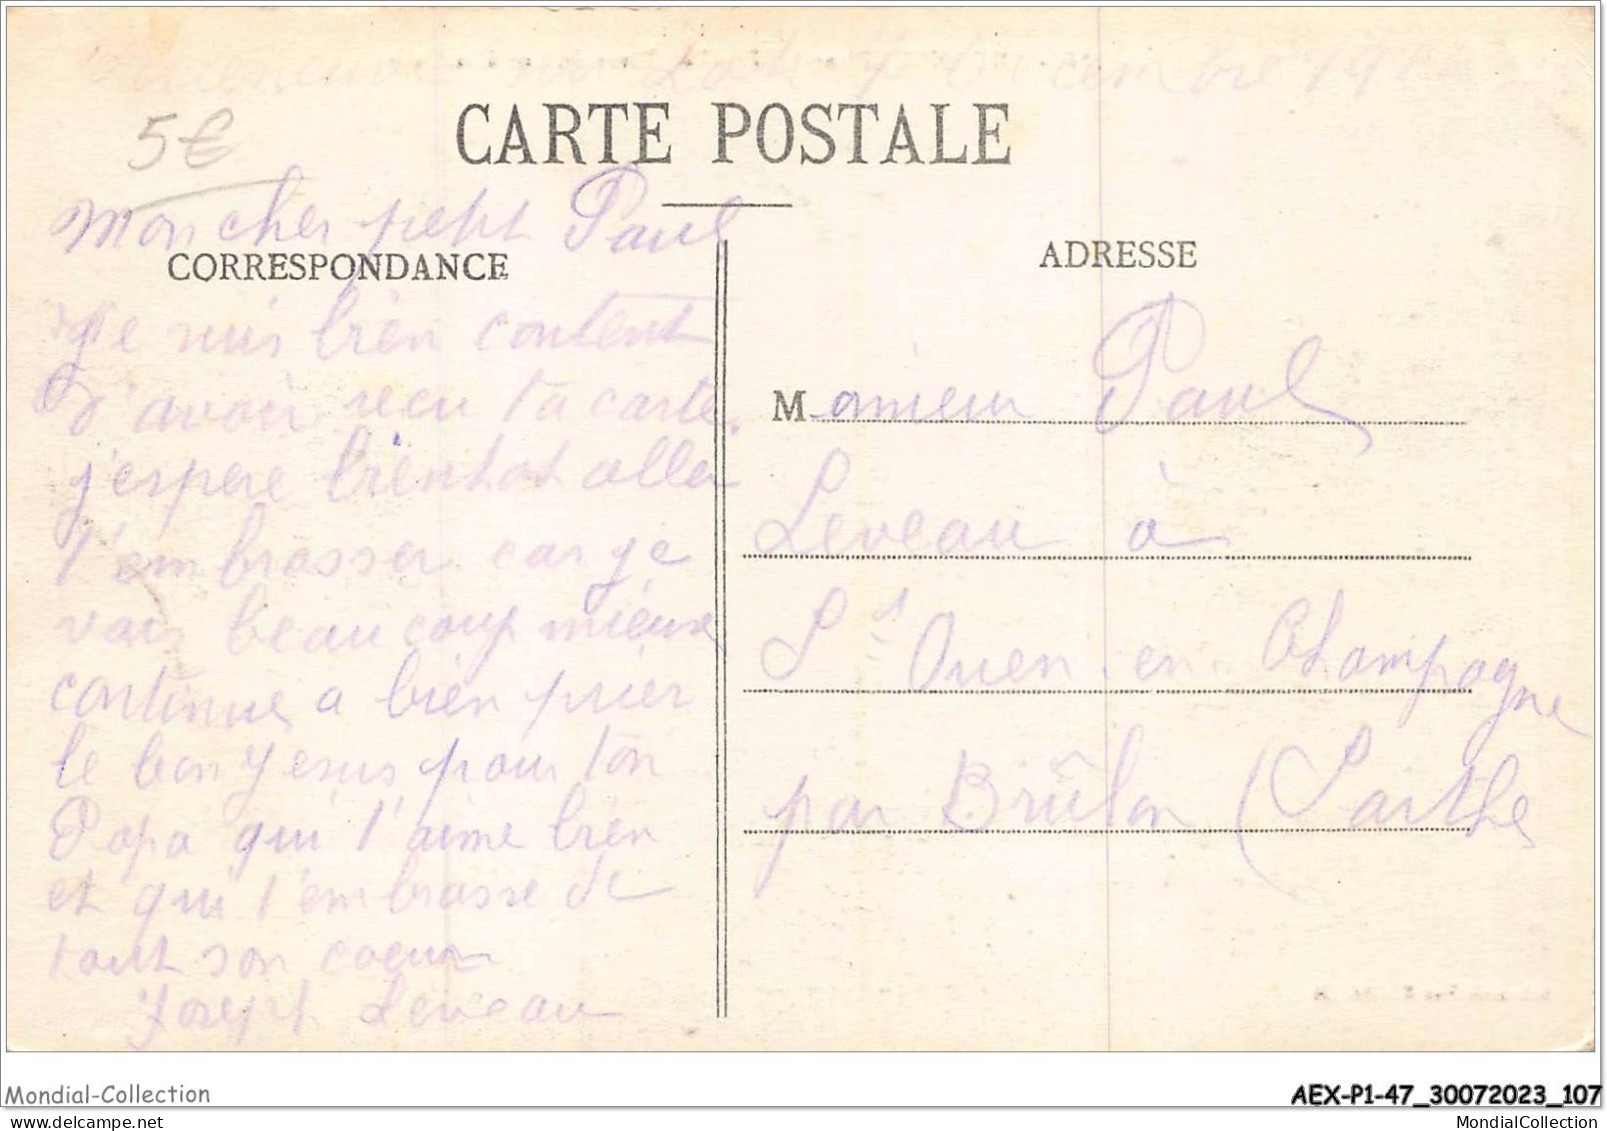 sur Lot 7
CARTE POSTALE
5€
Mon cher petit Paul
CORRESPONDANCE
ADRESSE
Je suis bien content
d'avoir recu ta carte.
j'espere bientot aller
t'embrasser car je
vais beaucoup mieux
continue a bien prier
le bon Jesus pour ton
Papa qui t'aime bien
et qui t'embrasse de
tout son coeur
Joseph Leveau
Monsieur Paul
Leveau à
St Ouen-en-Champagne
par Brûlon (Sarthe
Mondial-Collection
AEX-P1-47_30072023_107
www.delcampe.net
MondialCollection